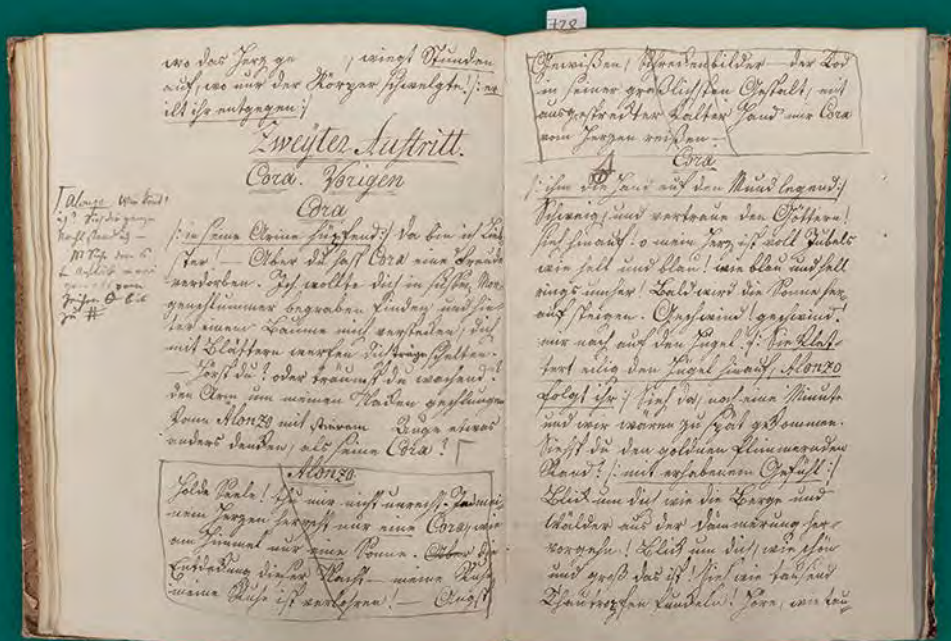 wo das Herz ge , wiegt Stunden
auf, wo nur der Körper schwelgte. /: er
ilt ihr entgegen :/
Zweyter Auftritt.
Cora. Vorigen
Cora
/: in seine Arme hüpfend :/ Da bin ich Lieb-
ster! — Aber du hast Cora eine Freude
verdorben. Ich wollte dich in süssen Mor-
genschlummer begraben finden und hin-
ter einem Baume mich verstecken, dich
mit Blättern werfen dich träge schelten.
— Hörst du? oder träumst du wachend?
den Arm um meinen Nacken geschlungen
kann Alonzo mit Auge etwas
anders denken, als seine Cora?
Alonzo
Holde Seele! thu mir nicht unrecht. In mei-
nem Herzen herrscht nur eine Cora, wie
am Himmel nur eine Sonne. Aber die
Entdeckung dieser Nacht — meine Ruhe
meine Ruhe ist verlohren! — Angst
Alonzo
bis
zu #
128
Gewißen, Schreckenbilder — der Tod
in seiner gräßlichsten Gestalt, mit
ausgestreckter kalter Hand mir Cora
vom Herzen reißen —
Cora
/: ihm die Hand auf den Mund legend :/
Schweig! und vertraue den Göttern!
sieh hinauf: o mein Herz ist voll Jubels
wie hell und blau! wie blau und hell
rings umher! Bald wird die Sonne her-
auf steigen. Geschwind! geschwind!
nur noch auf den Hügel. /: Sie klet-
tert eilig den Hügel hinauf, Alonzo
folgt ihr :/ Sieh da, noch eine Minute
und wir wären zu spät gekommen.
Siehst du den goldnen flimmernden
Rand? /: mit erhabenem Gefühl :/
Blick um dich wie die Berge und
Wälder aus der Dämmerung her-
vorgehn! Blick um dich, wie schön
und groß das ist! Sieh wie tausend
Thautropfen funkeln! Höre, wie tau-